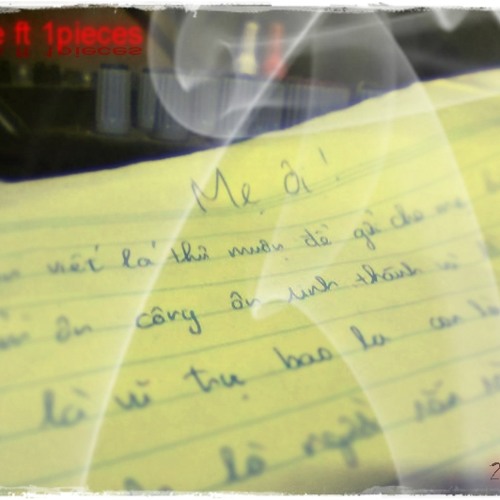 e ft 1pieces
Mẹ ơi!
viết lá thư muộn để gửi cho mẹ
ơn công ơn sinh thành vì
là vũ trụ bao la con là
là người
2